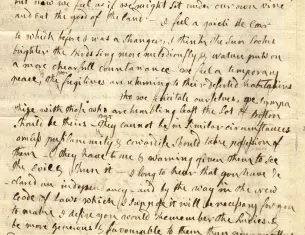 but now we feel as if we might sit under our own vine
and eat the good of the land — I feel a gaieti de Coar
to which before I was a stranger. I think the Sun looks
brighter the Birds sing more melodiously & Nature puts on
a more chearfull countanance. we feel a temporary
peace, & the fugitives are returning to their deserted habitations
tho we felicitate ourselves, we sympa
thize with those who are trembling least the Lot of Boston
should be theirs — they cannot be in similar circumstances
unless pusilanimity & cowardise should take possession of
them — they have time & warning given them to see
the Evil & shun it — I long to hear that you have de
clared an independancy — and by the way in the new
Code of Laws which I suppose it will be necessary for you
to make I desire you would Remember the Ladies, &
be more generous & favourable to them than your